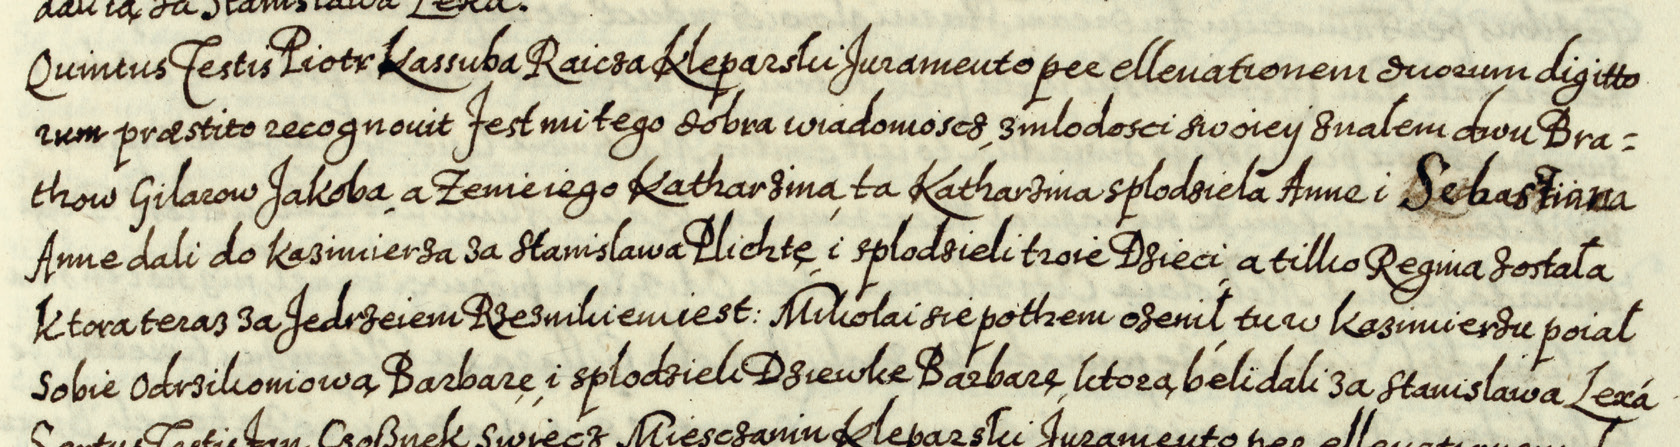 dali ią za Stanisława Lexa.
Quintus Testis Piotr Kassuba Raicza Kleparski Juramento per ellevationem duorum digitto
rum præstito recognouit Jest mi tego dobra wiadomoscz z mlodosci swoiey znałem dwu Bra=
thow Gilarow Jakoba, a Zenie iego Katharzina, ta Katharzina splodziela Anne i Sebastiana
Anne dali do Kazimierza za Stanislawa Plichtę, i splodzieli troie Dzieci, a tilko Regina została
ktora teraz za Jedrzeiem Rzeznikiem iest: Mikolai sie pothem ozenił, tu w Kazimierzu poiał
sobie Odrzikoniową, Barbarę, i splodzieli Dziewke Barbarę, ktorą, beli dali za Stanislawa Lexá
Sextus Testis Jan Mieszczanin Kleparski Juramento per